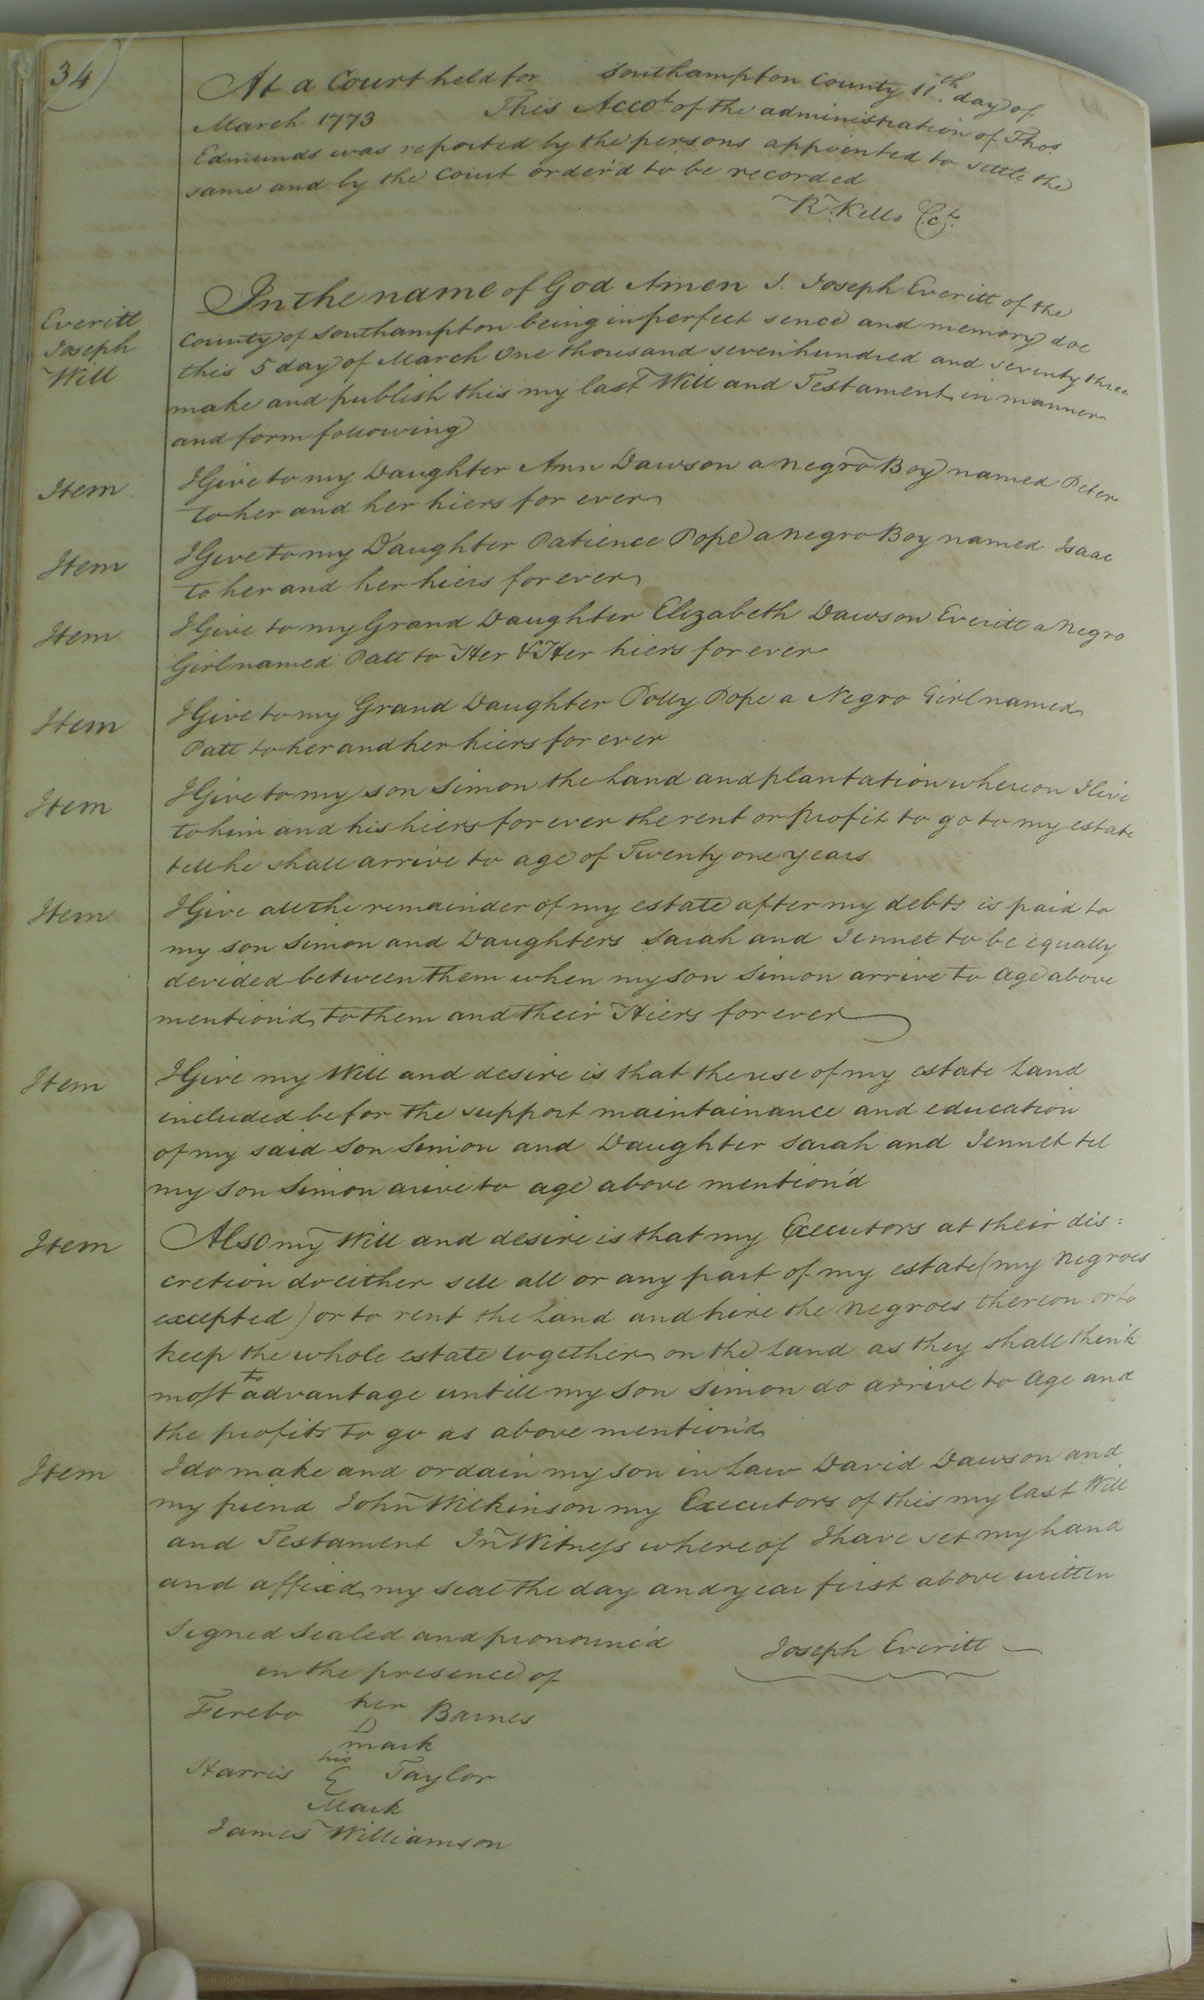 34
At a Court held for Southampton County 11th day of
March 1773 This Accot of the administration of Thos
Edmunds was reported by the persons appointed to settle the
same and by the Court order'd to be recorded
Rd. Kello Cct.
Everitt
Joseph
Will
In the name of God Amen I. Joseph Everitt of the
County of Southampton being in perfect sence and memory doe
this 5 day of March One thousand seven hundred and seventy three
make and publish this my last Will and Testament in manner
and form following
Item I Give to my Daughter Ann Dawson a negro Boy named Peter
to her and her hiers for ever
Item I Give to my Daughter Patience Pope a negro Boy named Isaac
to her and her hiers for ever
Item I Give to my Grand Daughter Elizabeth Dawson Everitt a Negro
Girl named Patt to Her & Her hiers for ever
Item I Give to my Grand Daughter Polly Pope a Negro Girl named
Patt to her and her hiers for ever
Item I Give to my son Simon the Land and plantation whereon I live
to him and his hiers for ever the rent or profit to go to my estate
till he shall arrive to age of Twenty one years
Item I Give all the remainder of my estate after my debts is paid to
my son Simon and Daughters Sarah and Jennet to be equally
devided between them when my son Simon arrive to age above
mention'd to them and their Hiers for ever
Item I Give my Will and desire is that the use of my estate Land
included be for the support maintainance and education
of my said Son Simon and Daughter Sarah and Jennet tel
my son Simon arive to age above mention'd
Item Also my Will and desire is that my Executors at their dis=
cretion do either sell all or any part of my estate (my Negroes
excepted) or to rent the Land and hire the negroes thereon or to
keep the whole estate together on the Land as they shall think
most to advantage untill my son Simon do arrive to age and
the profits to go as above mention'd
Item I do make and ordain my son in Law David Dawson and
my friend John Wilkinson my Executors of this my last Will
and Testament In Witness whereof I have set my hand
and affixd my seal the day and year first above written
Signed Sealed and pronounc'd Joseph Everitt
in the presence of
Ferebo her Barnes
mark
Harris his Taylor
Mark
James Williamson